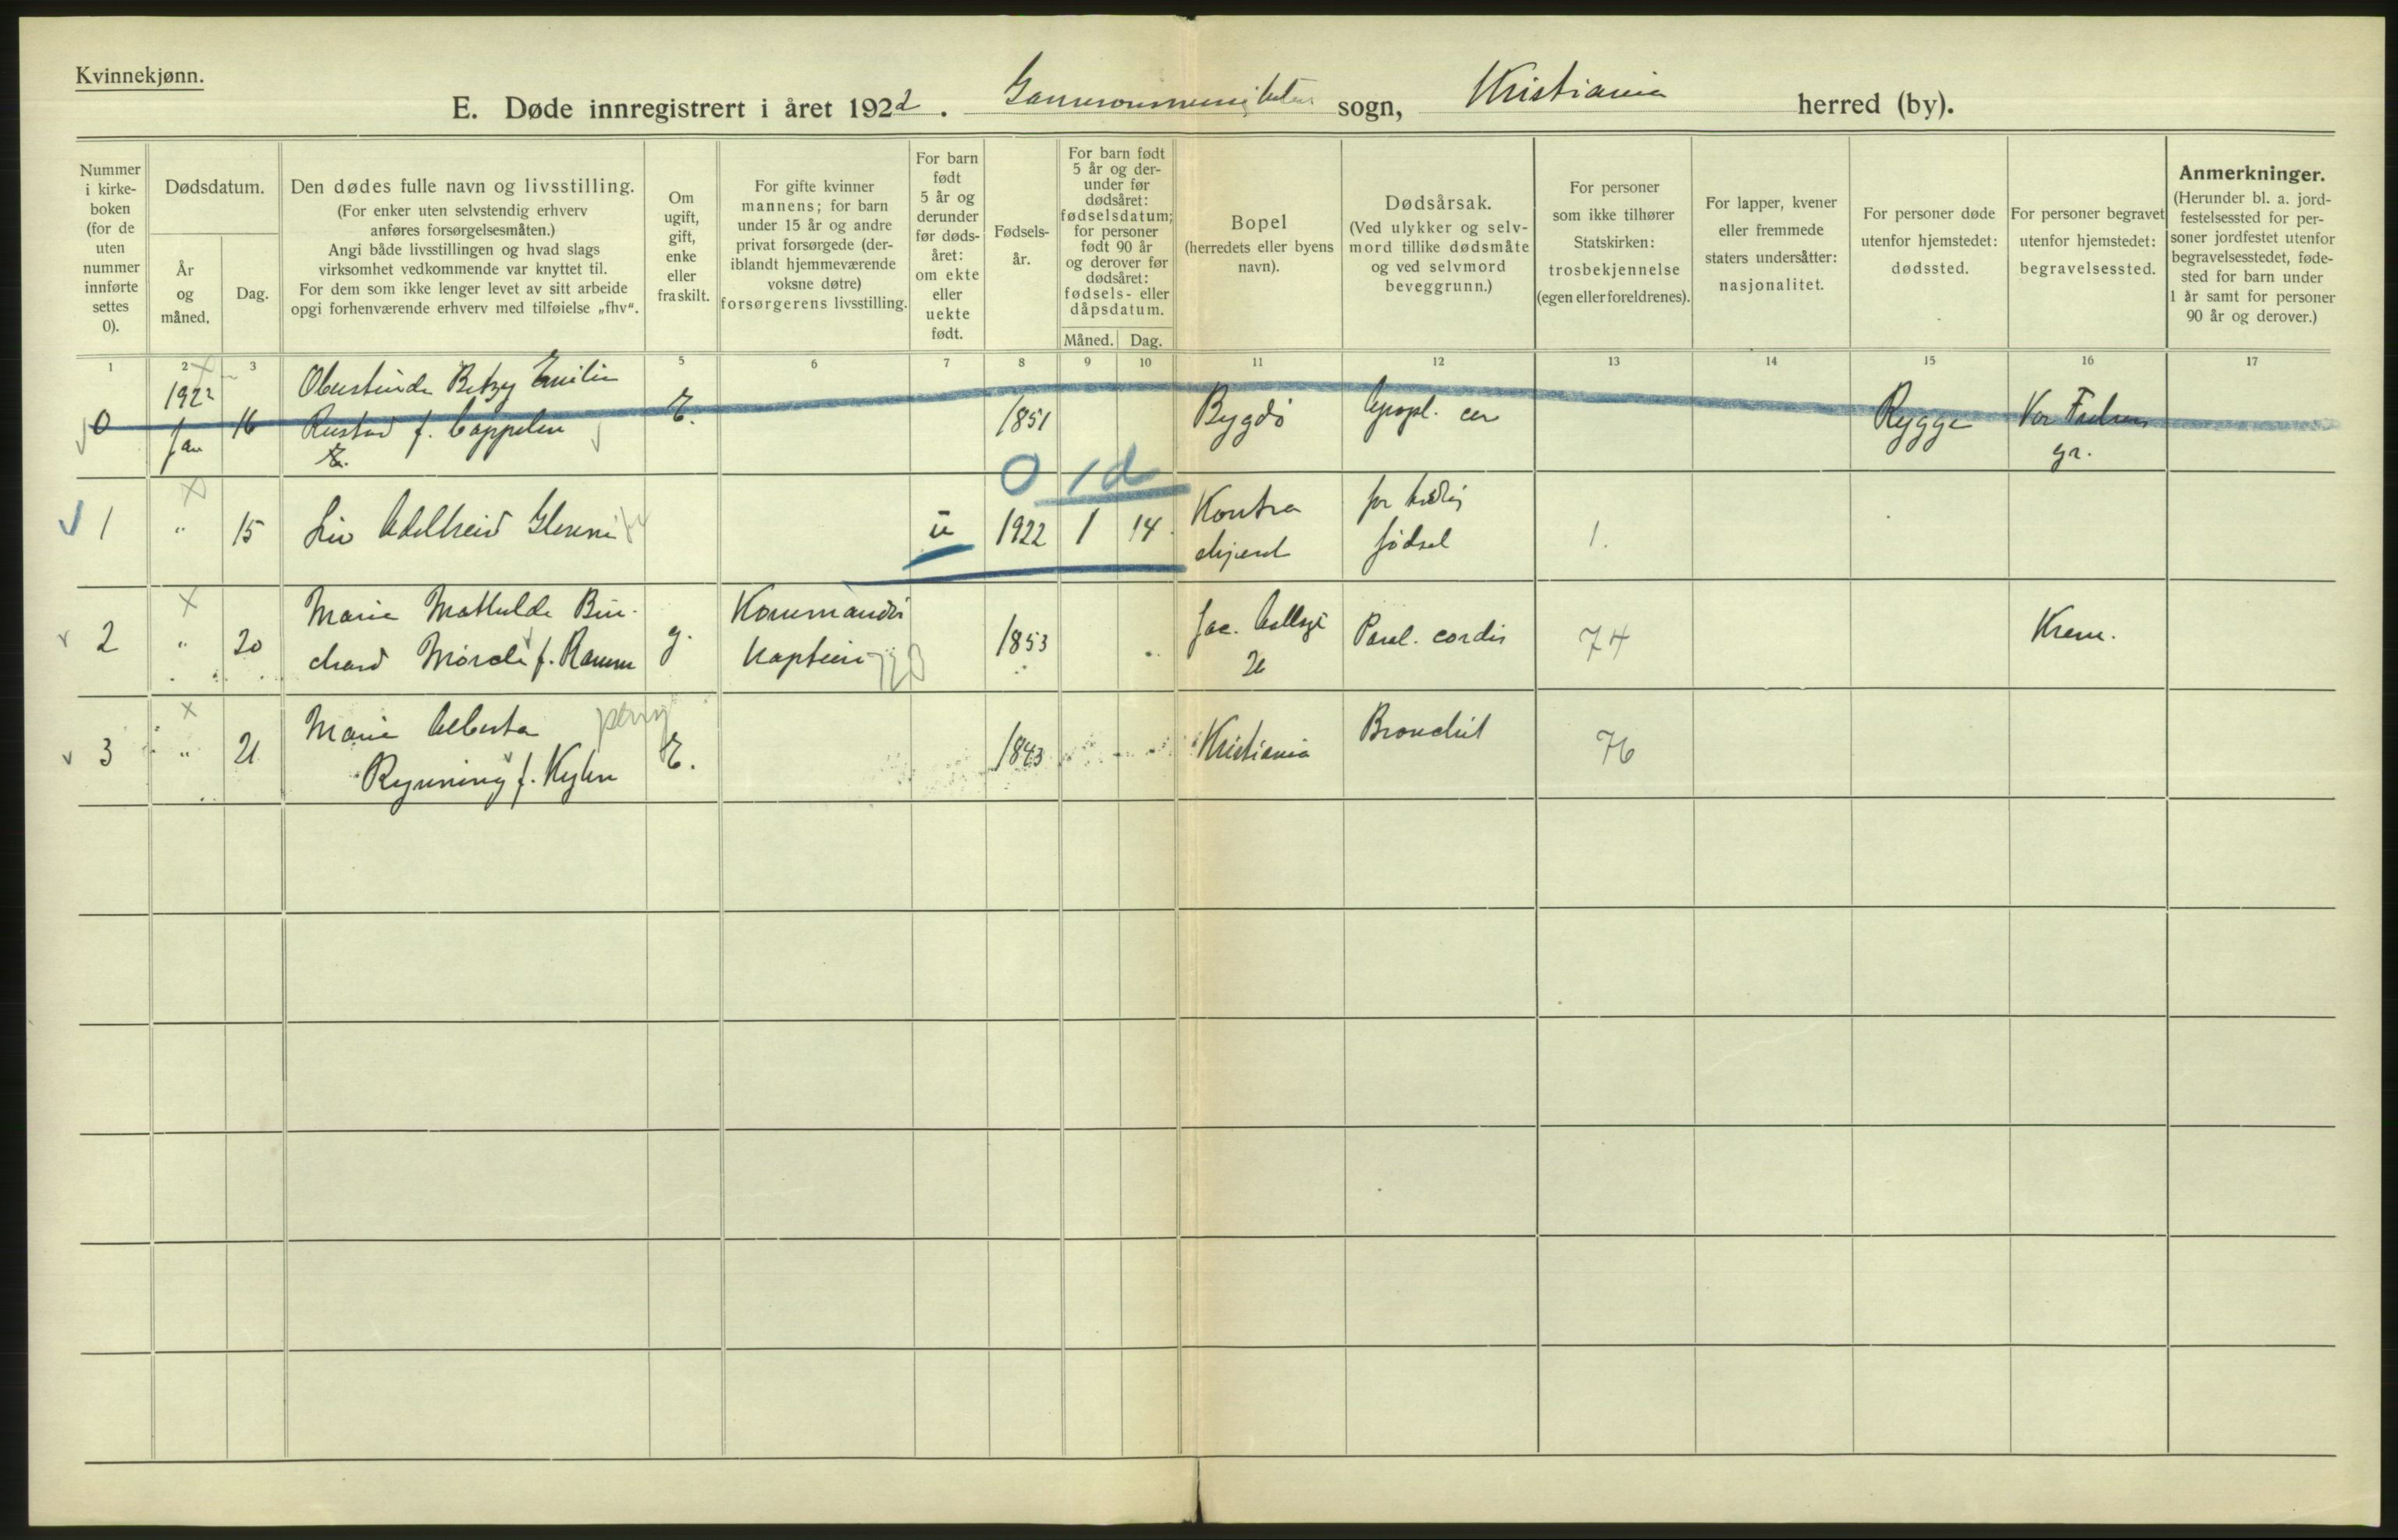 Kvinnekjønn.
E. Døde innregistrert i året 1922. sogn, Kristiania herred (by).
Nummer i kirkeboken (for de uten nummer innførte settes 0).
Dødsdatum.
År og måned.
Dag.
Den dødes fulle navn og livsstilling.
(For enker uten selvstendig erhverv
anføres forsørgelsesmåten.)
Angi både livsstillingen og hvad slags
virksomhet vedkommende var knyttet til.
For dem som ikke lenger levet av sitt arbeide
opgi forhenværende erhverv med tilføielse „fhv“.
Om
ugift,
gift,
enke
eller
fraskilt.
For gifte kvinner
mannens; for barn
under 15 år og andre
privat forsørgede (der-
iblandt hjemmeværende
voksne døtre)
forsørgerens livsstilling.
For barn
født
5 år og
derunder
før døds-
året:
om ekte
eller
uekte
født.
Fødsels-
år.
For barn født
5 år og der-
under før
dødsåret:
fødselsdatum;
for personer
født 90 år
og derover før
dødsåret:
fødsels- eller
dåpsdatum.
Måned. Dag.
Bopel
(herredets eller byens
navn).
Dødsårsak.
(Ved ulykker og selv-
mord tillike dødsmåte
og ved selvmord
beveggrunn.)
For personer
som ikke tilhører
Statskirken:
trosbekjennelse
(egen eller foreldrenes).
For lapper, kvener
eller fremmede
staters undersåtter:
nasjonalitet.
For personer døde
utenfor hjemstedet:
dødssted.
For personer begravet
utenfor hjemstedet:
begravelsessted.
Anmerkninger.
(Herunder bl. a. jord-
festelsessted for per-
soner jordfestet utenfor
begravelsesstedet, føde-
sted for barn under
1 år samt for personer
90 år og derover.)
1 2 3 5 6 7 8 9 10 11 12 13 14 15 16 17
0 1922 Jan 16 Betzy Emilie
Rustad f. Cappelen
E. E. 1851 Bygdö Apopl. cer Rygge Vor Frelsers
gr.
0 1d
1 " 15 Liv Adelheid u 1922 1 14 for tidlig
fødsel 1.
2 " 20 Marie Mathilde f. Ramm g. Kommandör
kaptein 1853 Paral. cordis 74 Krem.
3 " 21 Marie Alberta
Rynning f. E. 1843 Kristiania Bronchit 76